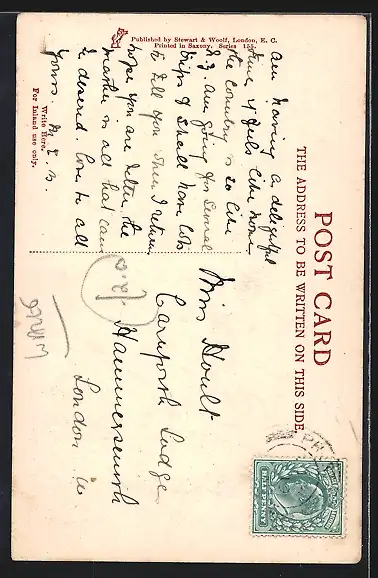 POST CARD
THE ADDRESS TO BE WRITTEN ON THIS SIDE.
Published by Stewart & Woolf, London, E. C.
Printed in Saxony. Series 155.
Write Here.
For Inland use only.
Am having a delightful
time & feels like home
the country is so like
N.Z. Am going for several
trips & shall have lots
to tell you when I return
hope you are better, the
weather is all that can
be desired. Love to all
Yours. M. E. B.
Miss Hoult
Carnforth Lodge
Hammersmith
London W.
HALF PENNY